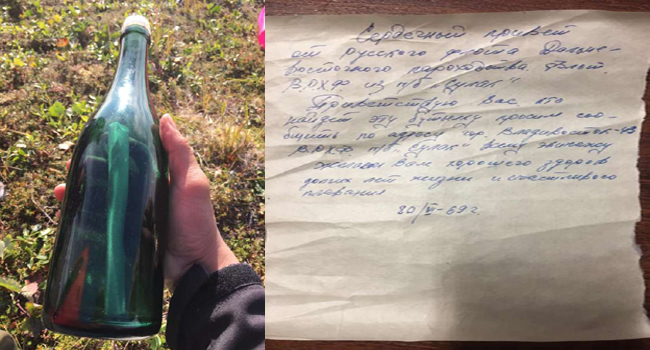 Сердечный привет
от русского флота Дальне-
восточного пароходства.
ВРХФ из п/б Сулак"
Приветствую Вас кто
найдет эту бутылку просим соо-
бщить по адресу гор. Владивосток-43
ВРХФ п/б Сулак" экипажу
желаем Вам хорошего здоров
долгих лет жизни и счастливого
плавания
-69 г.